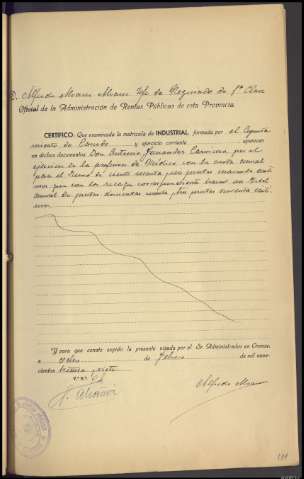 D. Alfredo Alvarez Alvarez Jefe de Negociado de 1ª Clase
Oficial de la Administración de Rentas Públicas de esta Provincia.
CERTIFICO: Que examinada la matrícula de INDUSTRIAL, formada por el Ayunta-
miento de y ejercicio corriente aparece
en dichos documentos Don Antonio Fernandez por el
ejercicio de la profesion de Médico con la cuota anual
para el Tesoro de ciento pesetas cuarenta centi-
mos que con los recargos correspondientes hacen un total
anual de pesetas doscientas pesetas noventa centi-
mos
Y para que conste expido la presente visada por el Sr. Administrador en Orense,
a ocho de Febrero de mil nove-
cientos treinta y siete
V.º B.º
Alfredo Alvarez